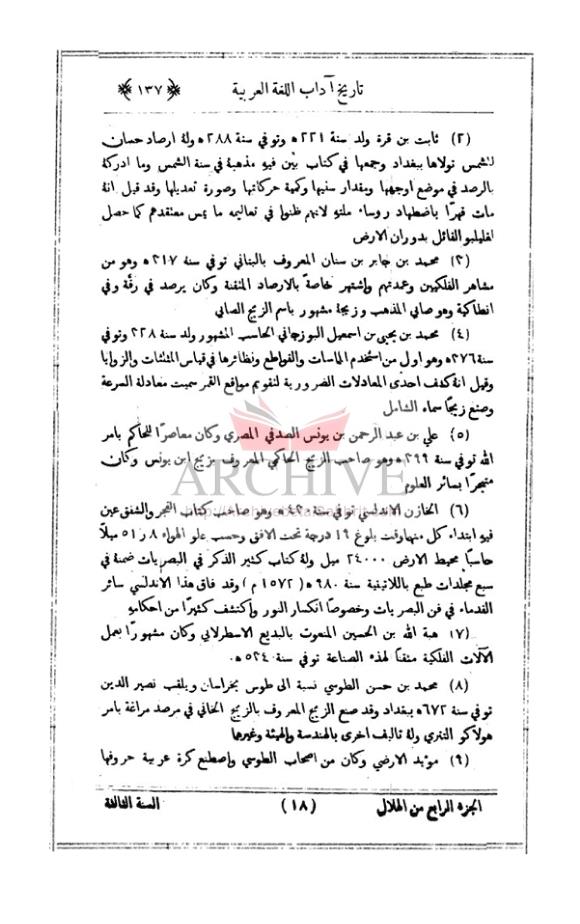 تاريخ آداب اللغة العربية
﴿ ١٣٧ ﴾
(٢) ثابت بن قرة ولد سنة ٢٢١ﻫ وتوفي سنة ٢٨٨ﻫ وله ارصاد حسان
للشمس تولاها ببغداد وجمعها في كتاب بيّن فيو مذهبة في سنة الشمس وما ادركة
بالرصد في موضع اوجهها ومقدار سنيها وكمية حركاتها وصورة تعديلها وقد قيل انة
مات قهرًا باضطهاد روساء ملتو لانهم ظنوا في تعاليمه ما يمس معتقدهم كما حصل
لغليليو القائل بدوران الارض
(٣) محمد بن جابر بن سنان المعروف بالبتاني توفي سنة ٣١٧ﻫ وهو من
مشاهر الفلكيين وعمدتهم واشتهر خاصةً بالارصاد المتقنة وكان يرصد في رقّة وفي
انطاكية وهو صابي المذهب وزيجة مشهور باسم الزيج الصابي
(٤) محمد بن يحيى بن اسمعيل البوزجاني الحاسب المشهور ولد سنة ٣٢٨ وتوفي
سنة ٣٧٦ﻫ وهو اول من استخدم المماسات والقواطع ونظائرها في قياس المثلثات والزوايا
وقيل انة كشف احدى المعادلات الضرورية لتقويم مواقع القمر سميت معادلة السرعة
وصنع زيجًا سماه الشامل
(٥) علي بن عبد الرحمن بن يونس الصدفي المصري وكان معاصرًا للحاكم بامر
الله توفي سنة ٣٩٩ﻫ وهو صاحب الزيج الحاكمي المعروف بزيج ابن يونس وكان
متبحرًا بسائر العلوم
ARCHIVE
(٦) الخازن الاندلسي توفي سنة ٤٣٠ﻫ وهو صاحب كتاب الفجر والشفق عين
فيو ابتداء كل منهما وقت بلوغ ١٩ درجة تحت الافق وحسب علو الهواء ٨ر٥١ ميلاً
حاسبًا محيط الارض ٢٤٠٠٠ ميل وله كتاب كثير الذكر في البصريات ضمنة في
سبع مجلدات طبع باللاتينية سنة ٦٨٠ﻫ (١٥٧٢م) وقد فاق هذا الاندلسي سائر
القدماء في فن البصريات وخصوصًا انكسار النور واكتشف كثيرًا من احكامو
(١٧ هبة الله بن الحسين المنعوت بالبديع الاسطرلابي وكان مشهورًا بعمل
الآلات الفلكية متقنًا لهذه الصناعة توفي سنة ٥٣٤ﻫ ٠
(٨) محمد بن حسن الطوسي نسبة الى طوس بخراسان ويلقب نصير الدين
توفي سنة ٦٧٢ﻫ ببغداد وقد صنع الزيج المعروف بالزيج الخاني في مرصد مراغة بامر
هولاكو التتري وله تاليف اخرى بالهندسة والهيئة وغيرها
(٩) مؤيد الارضي وكان من اصحاب الطوسي واصطنع كرة عربية حروفها
الجزء الرابع من الهلال
(١٨)
السنة الثالثة